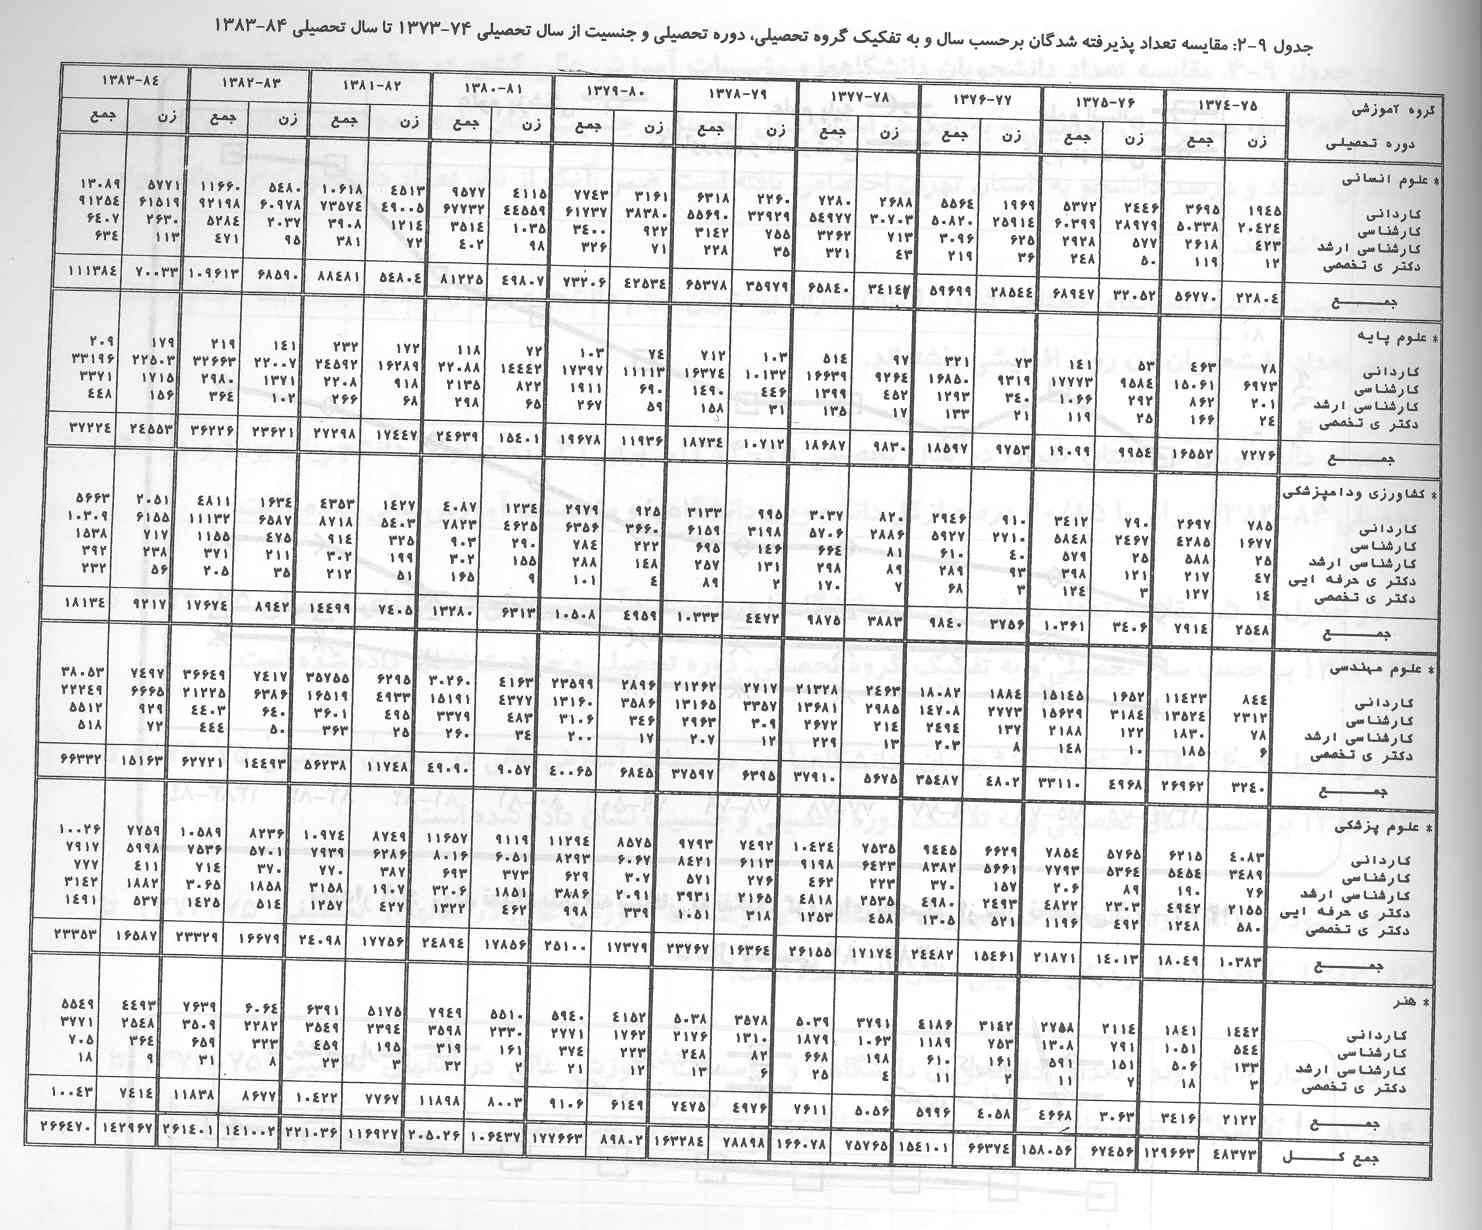 جدول ۹-۲: مقایسه تعداد پذیرفته شدگان برحسب سال و به تفکیک گروه تحصیلی، دوره تحصیلی و جنسیت از سال تحصیلی ۷۴-۱۳۷۳ تا سال تحصیلی ۸۴-۱۳۸۳
گروه آموزشی ۱۳۷٤-۷۵ ۱۳۷۵-۷۶ ۱۳۷۶-۷۷ ۱۳۷۷-۷۸ ۱۳۷۸-۷۹ ۱۳۷۹-۸۰ ۱۳۸۰-۸۱ ۱۳۸۱-۸۲ ۱۳۸۲-۸۳ ۱۳۸۳-۸٤
دوره تحصیلی زن جمع زن جمع زن جمع زن جمع زن جمع زن جمع زن جمع زن جمع زن جمع زن جمع
* علوم انسانی
کاردانی ۱۹٤۵ ۳۶۹۵ ۲٤٤۶ ۵۳۷۲ ۱۹۶۹ ۵۵۶٤ ۲۶۸۸ ۷۲۸۰ ۲۲۶۰ ۶۳۱۸ ۳۱۶۱ ۷۷٤۳ ٤۱۱۵ ۹۵۷۷ ٤۵۱۳ ۱۰۶۱۸ ۵٤۸۰ ۱۱۶۶۰ ۵۷۷۱ ۱۳۰۸۹
کارشناسی ۲۰٤۲٤ ۵۰۳۳۸ ۲۸۹۷۹ ۶۰۳۹۹ ۲۵۹۱٤ ۵۰۸۲۰ ۳۰۷۰۳ ۵٤۹۷۷ ۳۲۹۲۹ ۵۵۶۹۰ ۳۸۳۸۰ ۶۱۷۳۷ ٤٤۵۵۹ ۶۷۷۳۲ ٤۹۰۰۵ ۷۳۵۷٤ ۶۰۹۷۸ ۹۲۱۹۸ ۶۱۵۱۹ ۹۱۲۵٤
کارشناسی ارشد ٤۲۳ ۲۶۱۸ ۵۷۷ ۲۹۲۸ ۶۲۵ ۳۰۹۶ ۷۱۳ ۳۲۶۲ ۷۵۵ ۳۱٤۲ ۹۲۲ ۳٤۰۰ ۱۰۳۵ ۳۵۱٤ ۱۲۱٤ ۳۹۰۸ ۲۰۳۷ ۵۲۸٤ ۲۶۳۰ ۶٤۰۷
دکتر ی تخصصی ۱۲ ۱۱۹ ۵۰ ۲٤۸ ۳۶ ۲۱۹ ٤۳ ۳۲۱ ۳۵ ۲۲۸ ۷۱ ۳۲۶ ۹۸ ٤۰۲ ۷۲ ۳۸۱ ۹۵ ٤۷۱ ۱۱۳ ۶۳٤
جمـــــع ۲۲۸۰٤ ۵۶۷۷۰ ۳۲۰۵۲ ۶۸۹٤۷ ۲۸۵٤٤ ۵۹۶۹۹ ۳٤۱٤۷ ۶۵۸٤۰ ۳۵۹۷۹ ۶۵۳۷۸ ٤۲۵۳٤ ۷۳۲۰۶ ٤۹۸۰۷ ۸۱۲۲۵ ۵٤۸۰٤ ۸۸٤۸۱ ۶۸۵۹۰ ۱۰۹۶۱۳ ۷۰۰۳۳ ۱۱۱۳۸٤
* علوم پایه
کاردانی ۷۸ ٤۶۳ ۵۳ ۱٤۱ ۷۳ ۳۲۱ ۹۷ ۵۱٤ ۱۰۳ ۷۱۲ ۷٤ ۱۰۳ ۷۲ ۱۱۸ ۱۷۲ ۲۳۲ ۱٤۱ ۲۱۹ ۱۷۹ ۲۰۹
کارشناسی ۶۹۷۳ ۱۵۰۶۱ ۹۵۸٤ ۱۷۷۷۳ ۹۳۱۹ ۱۶۸۵۰ ۹۲۶٤ ۱۶۶۳۹ ۱۰۱۳۲ ۱۶۳۷٤ ۱۱۱۱۳ ۱۷۳۹۷ ۱٤٤٤۲ ۲۲۰۸۸ ۱۶۲۸۹ ۲٤۵۹۲ ۲۲۰۰۷ ۳۲۶۶۳ ۲۲۵۰۳ ۳۳۱۹۶
کارشناسی ارشد ۲۰۱ ۸۶۲ ۲۹۲ ۱۰۶۶ ۳٤۰ ۱۲۹۳ ٤۵۲ ۱۳۹۹ ٤٤۶ ۱٤۹۰ ۶۹۰ ۱۹۱۱ ۸۲۲ ۲۱۳۵ ۹۱۸ ۲۲۰۸ ۱۳۷۱ ۲۹۸۰ ۱۷۱۵ ۳۳۷۱
دکتر ی تخصصی ۲٤ ۱۶۶ ۲۵ ۱۱۹ ۲۱ ۱۳۳ ۱۷ ۱۳۵ ۳۱ ۱۵۸ ۵۹ ۲۶۷ ۶۵ ۲۹۸ ۶۸ ۲۶۶ ۱۰۲ ۳۶٤ ۱۵۶ ٤٤۸
جمـــــع ۷۲۷۶ ۱۶۵۵۲ ۹۹۵٤ ۱۹۰۹۹ ۹۷۵۳ ۱۸۵۹۷ ۹۸۳۰ ۱۸۶۸۷ ۱۰۷۱۲ ۱۸۷۳٤ ۱۱۹۳۶ ۱۹۶۷۸ ۱۵٤۰۱ ۲٤۶۳۹ ۱۷٤٤۷ ۲۷۲۹۸ ۲۳۶۲۱ ۳۶۲۲۶ ۲٤۵۵۳ ۳۷۲۲٤
* کشاورزی ودامپزشکی
کاردانی ۷۸۵ ۲۶۹۷ ۷۹۰ ۳٤۱۲ ۹۱۰ ۲۹٤۶ ۸۲۰ ۳۰۳۷ ۹۹۵ ۳۱۳۳ ۹۲۵ ۲۹۷۹ ۱۲۳٤ ٤۰۸۷ ۱٤۲۷ ٤۳۵۳ ۱۶۳٤ ٤۸۱۱ ۲۰۵۱ ۵۶۶۳
کارشناسی ۱۶۷۷ ٤۲۸۵ ۲٤۶۷ ۵۸٤۸ ۲۷۱۰ ۵۹۲۷ ۲۸۸۶ ۵۷۰۶ ۳۱۹۸ ۶۱۵۹ ۳۶۶۰ ۶۳۵۶ ٤۶۲۵ ۷۸۲۳ ۵٤۰۳ ۸۷۱۸ ۶۵۸۷ ۱۱۱۳۲ ۶۱۵۵ ۱۰۳۰۹
کارشناسی ارشد ۲۵ ۵۸۸ ۲۵ ۵۷۹ ٤۰ ۶۱۰ ۸۱ ۶۶٤ ۱٤۶ ۶۹۵ ۲۲۲ ۷۸٤ ۲۹۰ ۹۰۳ ۳۲۵ ۹۱٤ ٤۷۵ ۱۱۵۵ ۷۱۷ ۱۵۳۸
دکتر ی حرفه ایی ٤۷ ۲۱۷ ۱۲۱ ۳۹۸ ۹۳ ۲۸۹ ۸۹ ۲۹۸ ۱۳۱ ۲۵۷ ۱٤۸ ۲۸۸ ۱۵۵ ۳۰۲ ۱۹۹ ۳۰۲ ۲۱۱ ۳۷۱ ۲۳۸ ۳۹۲
دکتر ی تخصصی ۱٤ ۱۲۷ ۳ ۱۲٤ ۳ ۶۸ ۷ ۱۷۰ ۲ ۸۹ ٤ ۱۰۱ ۹ ۱۶۵ ۵۱ ۲۱۲ ۳۵ ۲۰۵ ۵۶ ۲۳۲
جمـــــع ۲۵٤۸ ۷۹۱٤ ۳٤۰۶ ۱۰۳۶۱ ۳۷۵۶ ۹۸٤۰ ۳۸۸۳ ۹۸۷۵ ٤٤۷۲ ۱۰۳۳۳ ٤۹۵۹ ۱۰۵۰۸ ۶۳۱۳ ۱۳۲۸۰ ۷٤۰۵ ۱٤٤۹۹ ۸۹٤۲ ۱۷۶۷٤ ۹۲۱۷ ۱۸۱۳٤
* علوم مهندسی
کاردانی ۸٤٤ ۱۱٤۲۳ ۱۶۵۲ ۱۵۱٤۵ ۱۸۸٤ ۱۸۰۸۲ ۲٤۶۳ ۲۱۳۲۸ ۲۷۱۷ ۲۱۲۶۲ ۲۸۹۶ ۲۳۵۹۹ ٤۱۶۳ ۳۰۲۶۰ ۶۲۹۵ ۳۵۷۵۵ ۷٤۱۷ ۳۶۶٤۹ ۷٤۹۷ ۳۸۰۵۳
کارشناسی ۲۳۱۲ ۱۳۵۲٤ ۳۱۸٤ ۱۵۶۲۹ ۲۷۷۳ ۱٤۷۰۸ ۲۹۸۵ ۱۳۶۸۱ ۳۳۵۷ ۱۳۱۶۵ ۳۵۸۶ ۱۳۱۶۰ ٤۳۷۷ ۱۵۱۹۱ ٤۹۳۳ ۱۶۵۱۹ ۶۳۸۶ ۲۱۲۲۵ ۶۶۶۵ ۲۲۲٤۹
کارشناسی ارشد ۷۸ ۱۸۳۰ ۱۲۲ ۲۱۸۸ ۱۳۷ ۲٤۹٤ ۲۱٤ ۲۶۷۲ ۳۰۹ ۲۹۶۳ ۳٤۶ ۳۱۰۶ ٤۸۳ ۳۳۷۹ ٤۹۵ ۳۶۰۱ ۶٤۰ ٤٤۰۳ ۹۲۹ ۵۵۱۲
دکتر ی تخصصی ۶ ۱۸۵ ۱۰ ۱٤۸ ۸ ۲۰۳ ۱۳ ۲۲۹ ۱۲ ۲۰۷ ۱۷ ۲۰۰ ۳٤ ۲۶۰ ۲۵ ۳۶۳ ۵۰ ٤٤٤ ۷۲ ۵۱۸
جمـــــع ۳۲٤۰ ۲۶۹۶۲ ٤۹۶۸ ۳۳۱۱۰ ٤۸۰۲ ۳۵٤۸۷ ۵۶۷۵ ۳۷۹۱۰ ۶۳۹۵ ۳۷۵۹۷ ۶۸٤۵ ٤۰۰۶۵ ۹۰۵۷ ٤۹۰۹۰ ۱۱۷٤۸ ۵۶۲۳۸ ۱٤٤۹۳ ۶۲۷۲۱ ۱۵۱۶۳ ۶۶۳۳۲
* علوم پزشکی
کاردانی ٤۰۸۳ ۶۲۱۵ ۵۷۶۵ ۷۸۵٤ ۶۶۲۹ ۹٤٤۵ ۷۵۳۵ ۱۰٤۲٤ ۷٤۹۲ ۹۷۹۳ ۸۵۷۵ ۱۱۲۹٤ ۹۱۱۹ ۱۱۶۵۷ ۸۷٤۹ ۱۰۹۷٤ ۸۲۳۶ ۱۰۵۸۹ ۷۷۵۹ ۱۰۰۲۶
کارشناسی ۳٤۸۹ ۵٤۵٤ ۵۳۶٤ ۷۷۹۳ ۵۶۶۱ ۸۳۸۲ ۶٤۲۳ ۹۱۹۸ ۶۱۱۳ ۸٤۲۱ ۶۰۶۷ ۸۲۹۳ ۶۰۵۱ ۸۰۱۶ ۶۲۸۶ ۷۹۳۹ ۵۷۰۱ ۷۵۳۶ ۵۹۹۸ ۷۹۱۷
کارشناسی ارشد ۷۶ ۱۹۰ ۸۹ ۲۰۶ ۱۵۷ ۳۷۰ ۲۲۳ ٤۶۲ ۲۷۶ ۵۷۱ ۳۰۷ ۶۲۹ ۳۷۳ ۶۹۳ ۳۸۷ ۷۷۰ ۳۷۰ ۷۱٤ ٤۱۱ ۷۷۷
دکتر ی حرفه ایی ۲۱۵۵ ٤۹٤۲ ۲۳۰۳ ٤۸۲۲ ۲٤۹۳ ٤۹۸۰ ۲۵۳۵ ٤۸۱۸ ۲۱۶۵ ۳۹۳۱ ۲۰۹۱ ۳۸۸۶ ۱۸۵۱ ۳۲۰۶ ۱۹۰۷ ۳۱۵۸ ۱۸۵۸ ۳۰۶۵ ۱۸۸۲ ۳۱٤۲
دکتر ی تخصصی ۵۸۰ ۱۲٤۸ ٤۹۲ ۱۱۹۶ ۵۲۱ ۱۳۰۵ ٤۵۸ ۱۲۵۳ ۳۱۸ ۱۰۵۱ ۳۳۹ ۹۹۸ ٤۶۲ ۱۳۲۲ ٤۲۷ ۱۲۵۷ ۵۱٤ ۱٤۲۵ ۵۳۷ ۱٤۹۱
جمـــــع ۱۰۳۸۳ ۱۸۰٤۹ ۱٤۰۱۳ ۲۱۸۷۱ ۱۵٤۶۱ ۲٤٤۸۲ ۱۷۱۷٤ ۲۶۱۵۵ ۱۶۳۶٤ ۲۳۷۶۷ ۱۷۳۷۹ ۲۵۱۰۰ ۱۷۸۵۶ ۲٤۸۹٤ ۱۷۷۵۶ ۲٤۰۹۸ ۱۶۶۷۹ ۲۳۳۲۹ ۱۶۵۸۷ ۲۳۳۵۳
* هنر
کاردانی ۱٤٤۲ ۱۸٤۱ ۲۱۱٤ ۲۷۵۸ ۳۱٤۲ ٤۱۸۶ ۳۷۹۱ ۵۰۳۹ ۳۵۷۸ ۵۰۳۸ ٤۱۵۲ ۵۹٤۰ ۵۵۱۰ ۷۹٤۹ ۵۱۷۵ ۶۳۹۱ ۶۰۶٤ ۷۶۳۹ ٤٤۹۳ ۵۵٤۹
کارشناسی ۵٤٤ ۱۰۵۱ ۷۹۱ ۱۳۰۸ ۷۵۳ ۱۱۸۹ ۱۰۶۳ ۱۸۷۹ ۱۳۱۰ ۲۱۷۶ ۱۷۶۲ ۲۷۷۱ ۲۳۳۰ ۳۵۹۸ ۲۳۹٤ ۳۵٤۹ ۲۲۸۲ ۳۵۰۹ ۲۵٤۸ ۳۷۷۱
کارشناسی ارشد ۱۳۳ ۵۰۶ ۱۵۱ ۵۹۱ ۱۶۱ ۶۱۰ ۱۹۸ ۶۶۸ ۸۲ ۲٤۸ ۲۲۳ ۳۷٤ ۱۶۱ ۳۱۹ ۱۹۵ ٤۵۹ ۳۲۳ ۶۵۹ ۳۶٤ ۷۰۵
دکتر ی تخصصی ۳ ۱۸ ۷ ۱۱ ۲ ۱۱ ٤ ۲۵ ۶ ۱۳ ۱۲ ۲۱ ۲ ۳۲ ۳ ۲۳ ۸ ۳۱ ۹ ۱۸
جمـــــع ۲۱۲۲ ۳٤۱۶ ۳۰۶۳ ٤۶۶۸ ٤۰۵۸ ۵۹۹۶ ۵۰۵۶ ۷۶۱۱ ٤۹۷۶ ۷٤۷۵ ۶۱٤۹ ۹۱۰۶ ۸۰۰۳ ۱۱۸۹۸ ۷۷۶۷ ۱۰٤۲۲ ۸۶۷۷ ۱۱۸۳۸ ۷٤۱٤ ۱۰۰٤۳
جمع کـــــل ٤۸۳۷۳ ۱۲۹۶۶۳ ۶۷٤۵۶ ۱۵۸۰۵۶ ۶۶۳۷٤ ۱۵٤۱۰۱ ۷۵۷۶۵ ۱۶۶۰۷۸ ۷۸۸۹۸ ۱۶۳۲۸٤ ۸۹۸۰۲ ۱۷۷۶۶۳ ۱۰۶٤۳۷ ۲۰۵۰۲۶ ۱۱۶۹۲۷ ۲۲۱۰۳۶ ۱٤۱۰۰۲ ۲۶۱٤۰۱ ۱٤۲۹۶۷ ۲۶۶٤۷۰